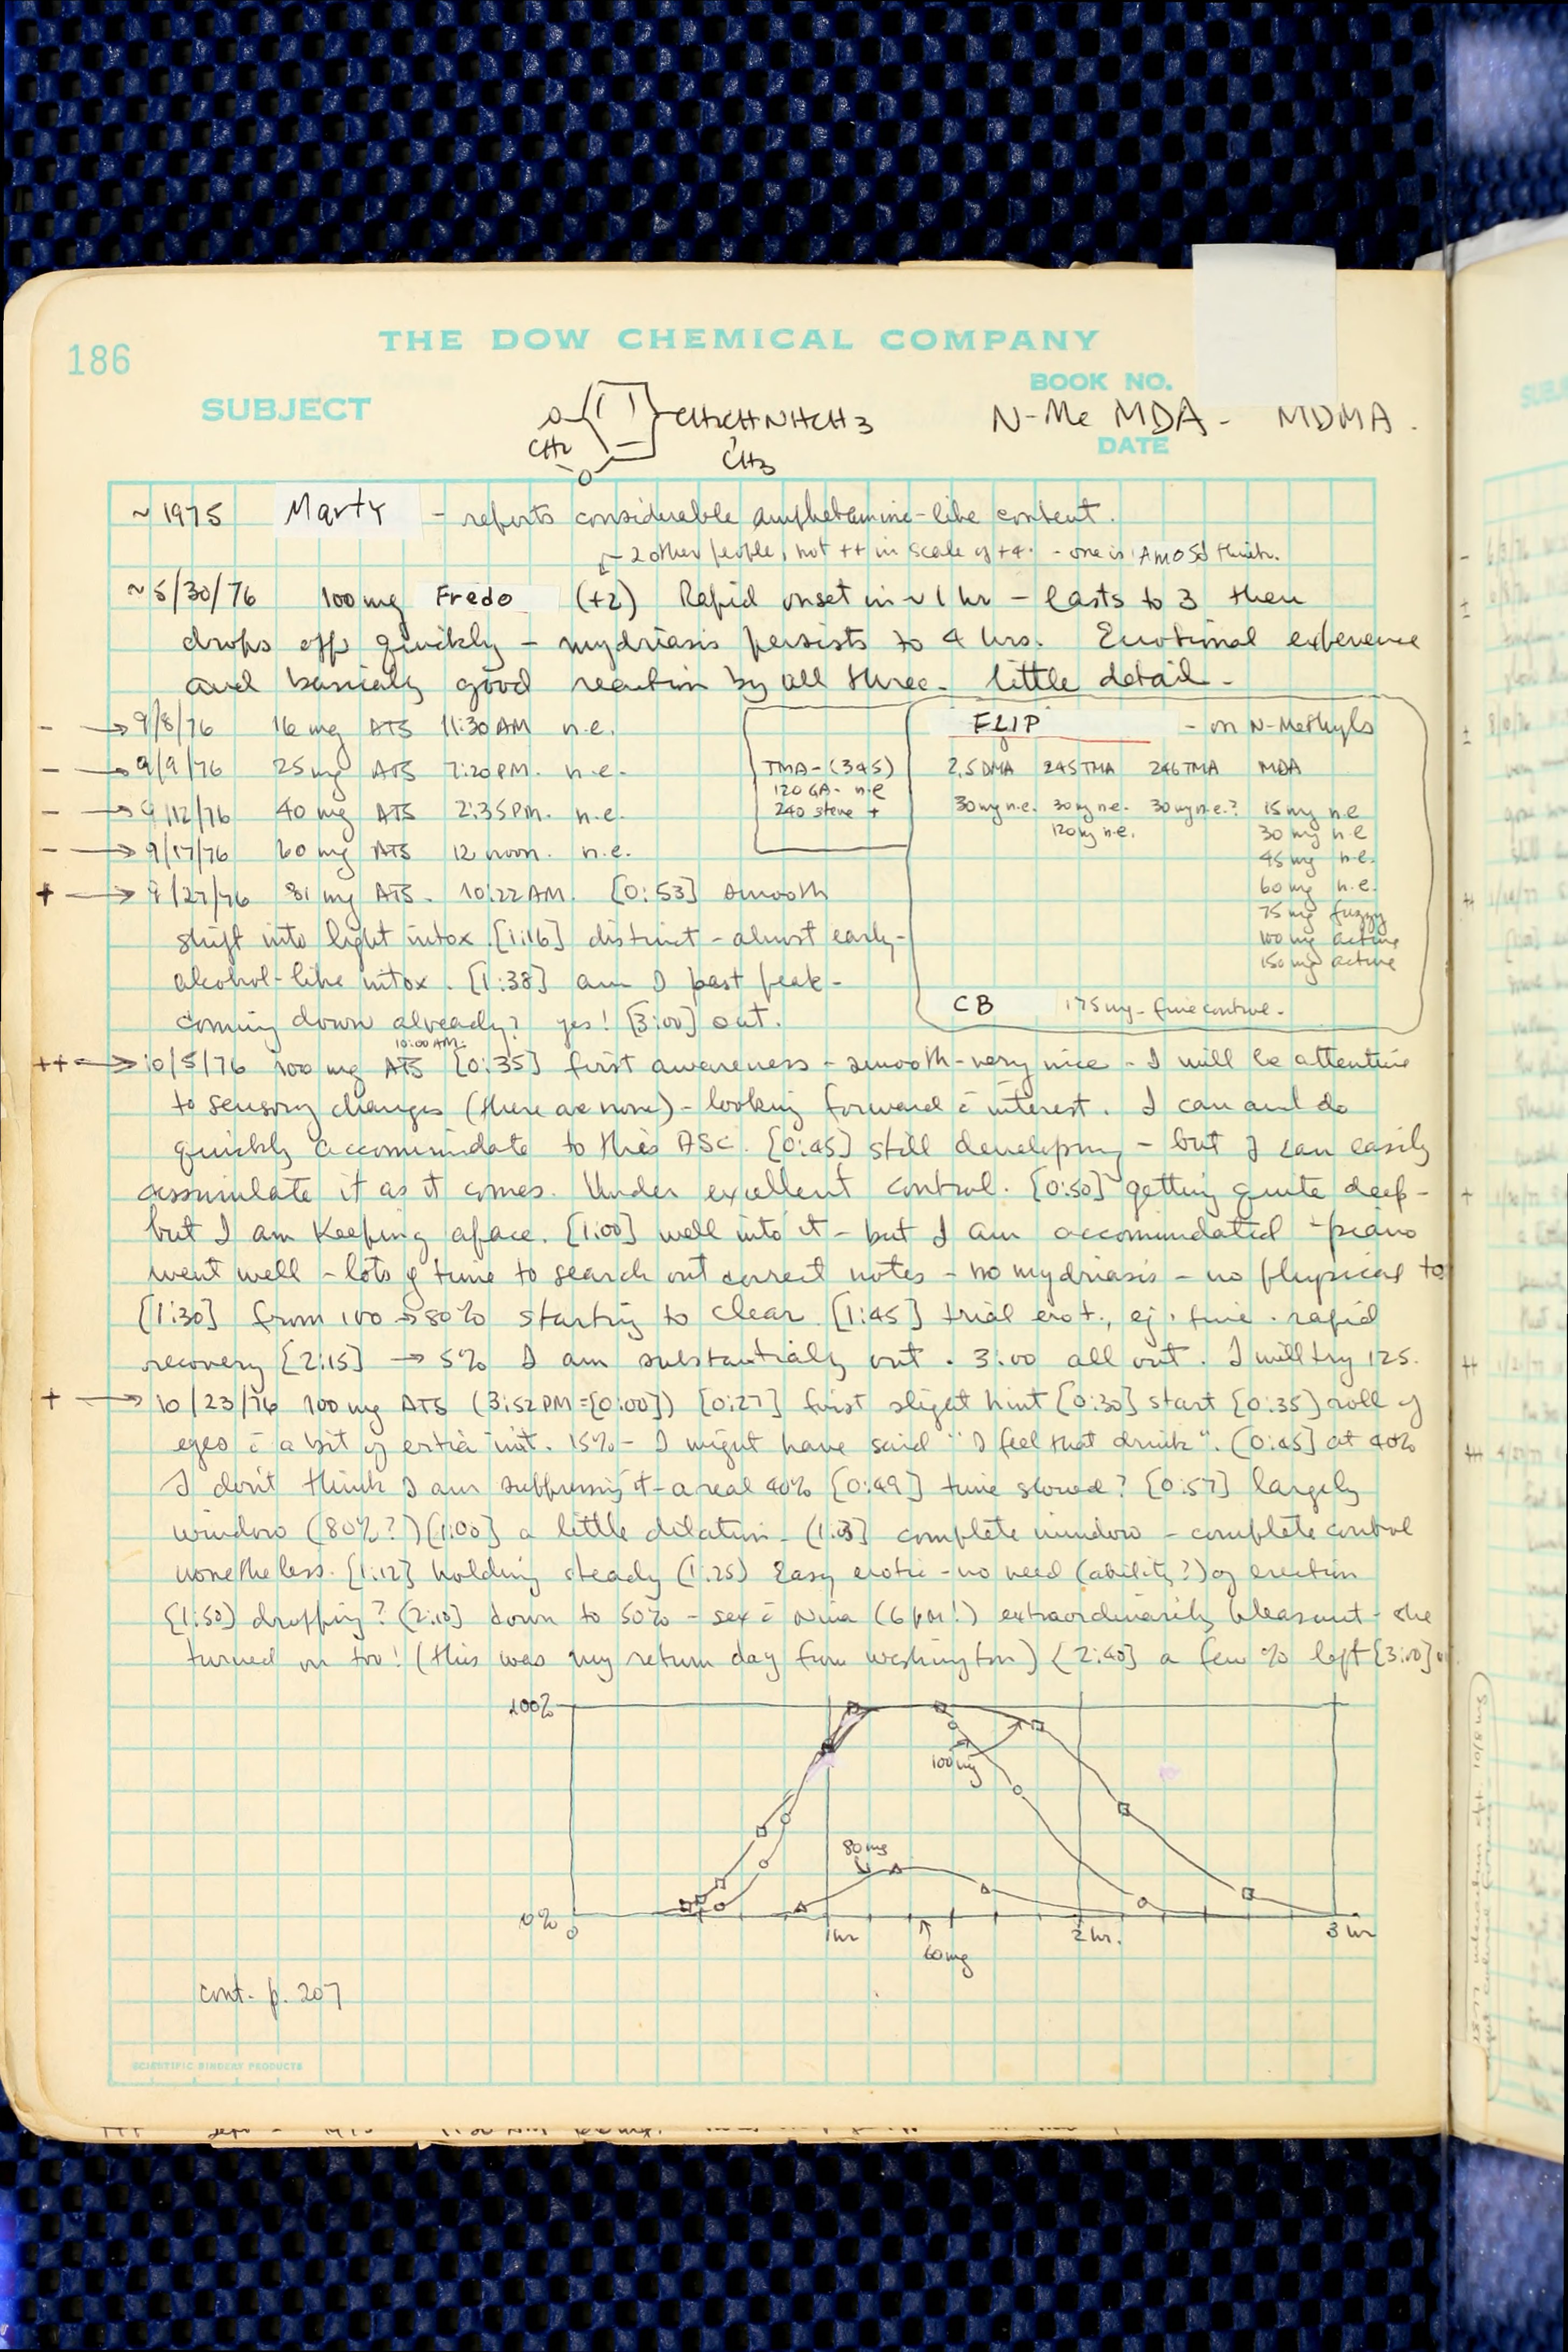 186
THE DOW CHEMICAL COMPANY
SUBJECT
BOOK NO.
DATE
O CH2CHNHCH3
CH2 O CH3
N-Me MDA - MDMA.
~1975 Marty - reports considerable amphetamine-like content.
2 other people, not ++ in scale of +4. - one is AMOS I think.
~5/30/76 100 mg Fredo (+2) Rapid onset in ~1 hr - lasts to 3 then
drops off quickly - mydriasis persists to 4 hrs. Emotional experience
and basically good reaction by all three. little detail -
- → 9/8/76 16 mg ATS 11:30 AM n.e.
- → 9/9/76 25 mg ATS 7:20 PM. n.e.
- → 9/12/76 40 mg ATS 2:35 PM. n.e.
- → 9/17/76 60 mg ATS 12 noon. n.e.
TMA-(345)
120 GA- n.e
240 steve +
FLIP - on N-Methyls
2,5 DMA 245 TMA 246 TMA MDA
30 mg n.e. 30 mg n.e. 30 mg n.e.? 15 mg n.e
120 mg n.e. 30 mg n.e
45 mg n.e.
60 mg n.e.
75 mg fuzzy
100 mg active
150 mg active
CB 175 mg - fine control.
+ → 9/27/76 81 mg ATS. 10:22 AM. [0:53] smooth
shift into light intox. [1:16] distinct - almost early-
alcohol-like intox. [1:38] am I past peak -
coming down already? yes! [3:00] out.
10:00 AM.
++ → 10/5/76 100 mg ATS [0:35] first awareness - smooth - very nice - I will be attentive
to sensory changes (there are none) - looking forward c̄ interest. I can and do
quickly accommindate to this ASC. [0:45] still developing - but I can easily
assimulate it as it comes. Under excellent control. [0:50] getting quite deep -
but I am keeping apace. [1:00] well into it - but I am accommindated - piano
went well - lots of time to search out correct notes - no mydriasis - no physical to
[1:30] from 100 → 80% starting to clear. [1:45] trial erot., ej. fine. rapid
recovery [2:15] → 5% I am substantially out. 3:00 all out. I will try 125.
+ → 10/23/76 100 mg ATS (3:52 PM = [0:00]) [0:27] first slight hint [0:30] start [0:35] roll of
eyes c̄ a bit of init. 15% - I might have said "I feel that drink". [0:45] at 40%
I don't think I am suppressing it - a real 40% [0:49] time slowed? [0:57] largely
window (80%?) [1:00] a little dilation - complete window - complete control
nonetheless. [1:12] holding steady (1:25) Easy erotic - no need (ability?) of erection
[1:50] dropping? (2:10) down to 50% - sex c̄ Nina (6 PM!) extraordinarily pleasant - she
turned on too! (this was my return day from Washington) [2:40] a few % left [3:00]
100%
100 mg
80 mg
0%
0 1 hr 2 hr. 3 hr
60 mg
cont. p. 207
SCIENTIFIC BINDERY PRODUCTS